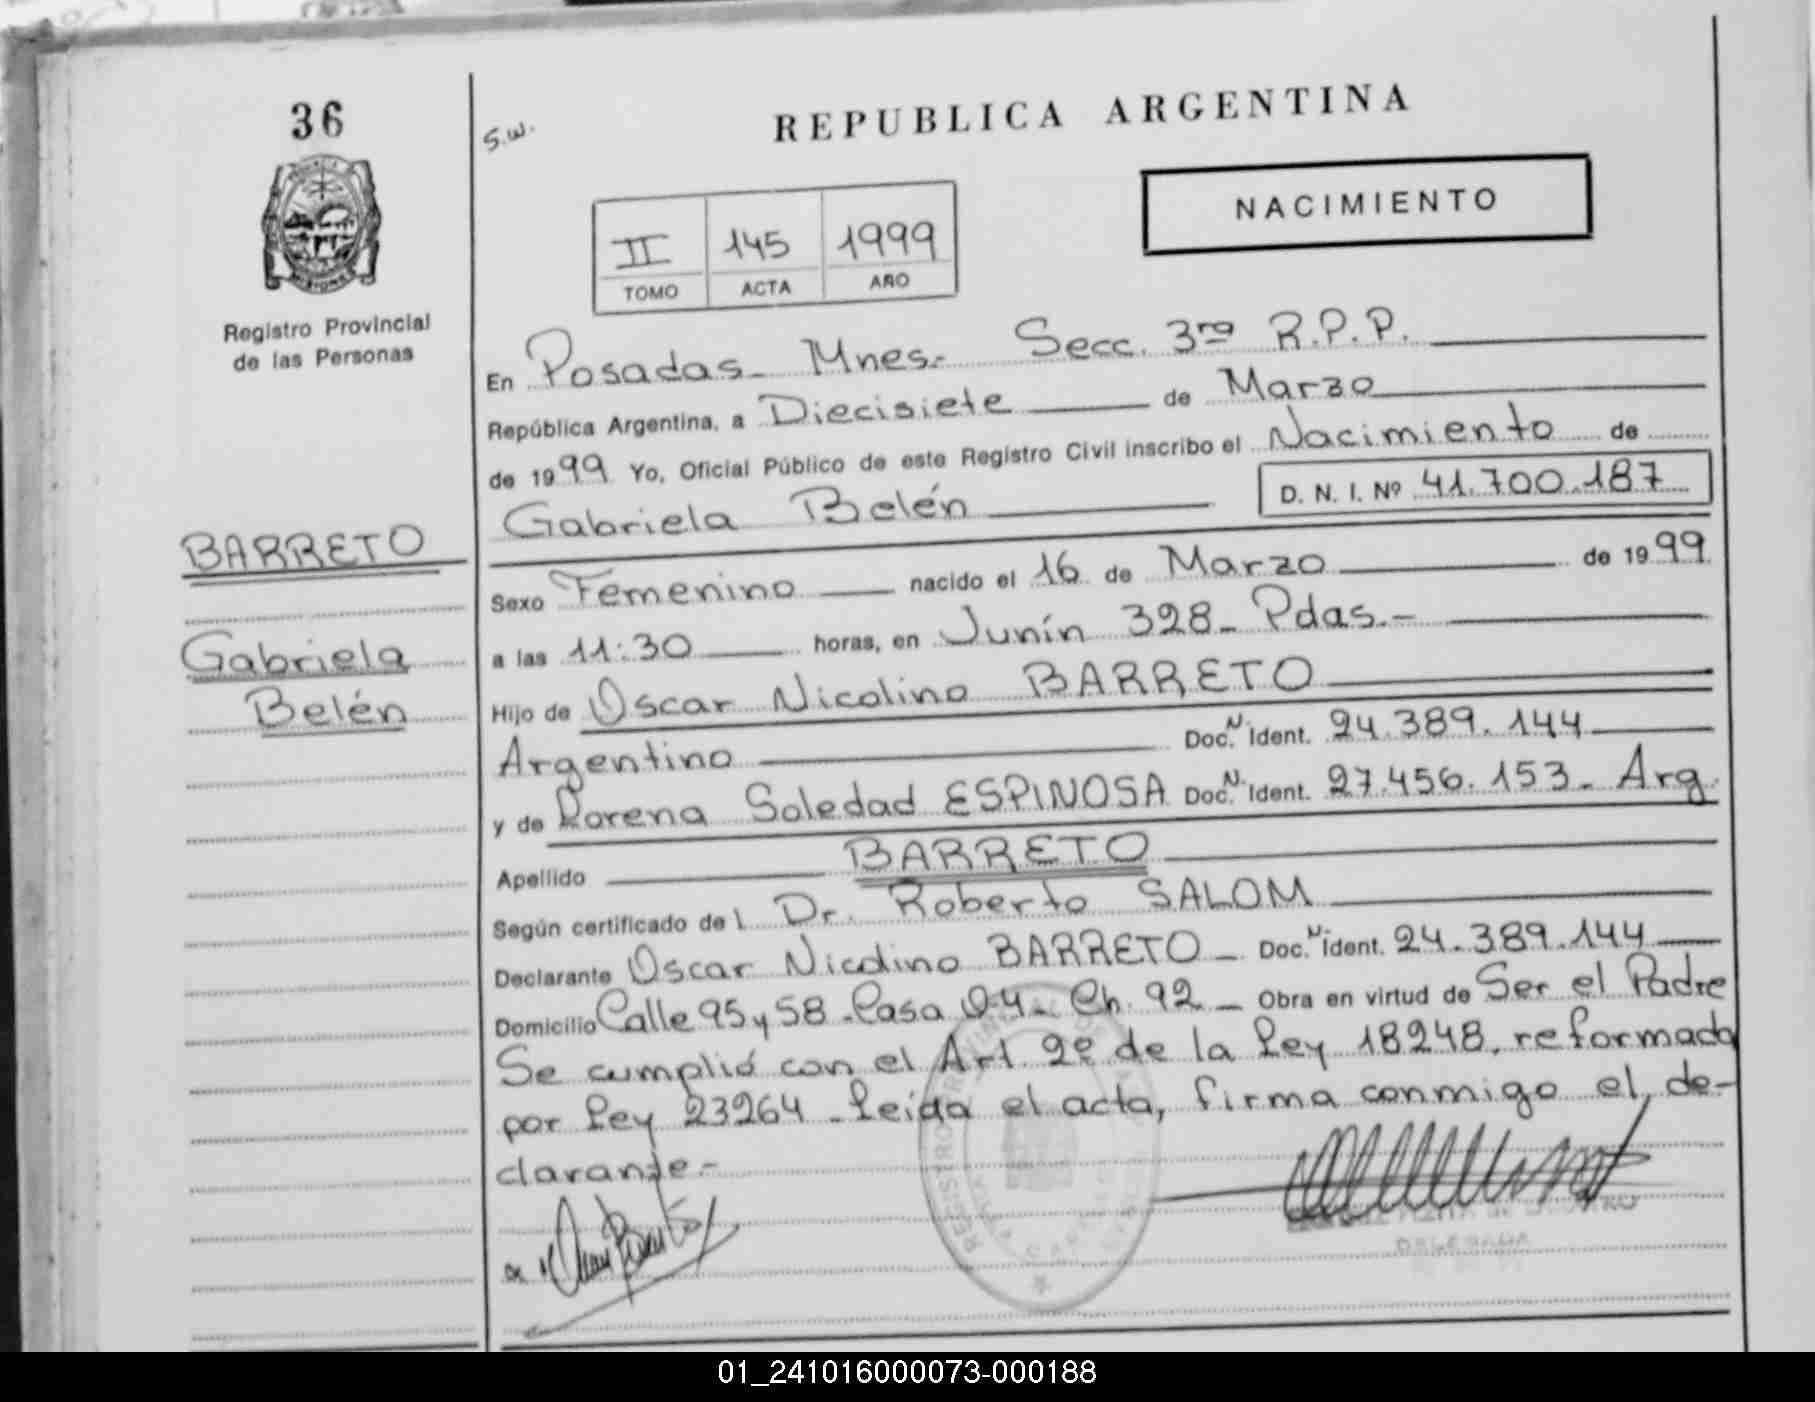 36
Registro Provincial
de las Personas
BARRETO
Gabriela
Belén
S.W.
REPUBLICA ARGENTINA
NACIMIENTO
II 145 1999
TOMO ACTA AÑO
En Posadas - Mnes.- Secc. 3ra R.P.P.
República Argentina, a Diecisiete de Marzo
de 1999 Yo, Oficial Público de este Registro Civil inscribo el Nacimiento de
Gabriela Belén D. N. I. Nº 41.700.187
Sexo Femenino nacido el 16 de Marzo de 1999
a las 11:30 horas, en Junín 328- Pdas.-
Hijo de Oscar Nicolino BARRETO
Argentino Doc. N Ident. 24.389.144
y de Lorena Soledad ESPINOSA Doc. N Ident. 27.456.153- Arg.
Apellido BARRETO
Según certificado del Dr. Roberto SALOM
Declarante Oscar Nicolino BARRETO - Doc. N Ident. 24.389.144
Domicilio Calle 95 y 58 - Casa 04- Ch. 92 - Obra en virtud de Ser el Padre
Se cumplió con el Art. 2º de la Ley 18248, reformada
por Ley 23264 - Leída el acta, firma conmigo el de-
clarante-
01_241016000073-000188